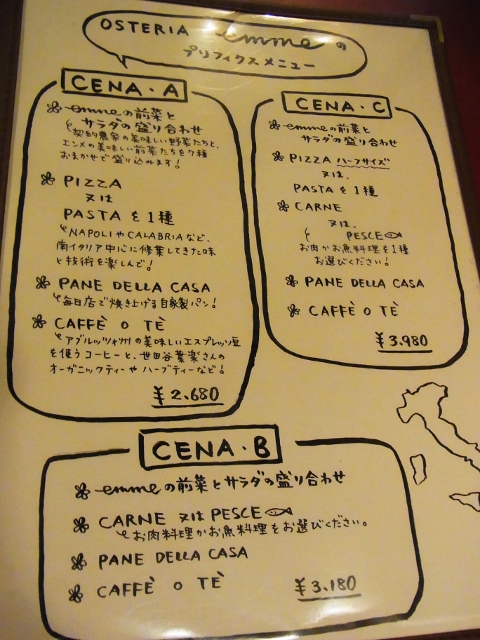 OSTERIA emmeの
プリフィクスメニュー
CENA・A
emmeの前菜と
サラダの盛り合わせ
契約農家の美味しい野菜たちと、
エンメの美味しい前菜たちを7種
おまかせで盛り込みます!
PIZZA
又は
PASTA を1種
NAPOLIやCALABRIAなど、
南イタリア中心に修業してきた味
と技術を楽しんで!
PANE DELLA CASA
毎日店で焼き上げる自家製パン!
CAFFÈ O TÈ
アブルッツォ州の美味しいエスプレッソ豆
を使うコーヒーと、世田谷葉楽さんの
オーガニックティーやハーブティーなど!
¥2.680
CENA・C
emmeの前菜と
サラダの盛り合わせ
PIZZA ハーフサイズ
又は、
PASTA を1種
CARNE
又は、
PESCE
お肉かお魚料理を1種
お選びください!
PANE DELLA CASA
CAFFÈ O TÈ
¥3.980
CENA・B
emmeの前菜とサラダの盛り合わせ
CARNE 又は PESCE
お肉料理かお魚料理をお選びください。
PANE DELLA CASA
CAFFÈ O TÈ
¥3.180